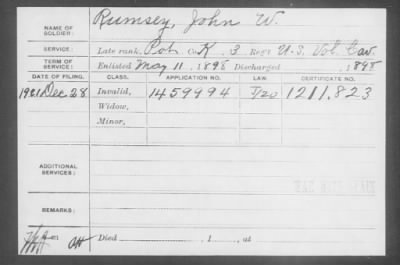 NAME OF SOLDIER: Rumsey, John W.
SERVICE: Late rank, Pvt. Co. K, 3 Reg't U.S. Vol. Cav.
TERM OF SERVICE: Enlisted May 11, 1898 Discharged , 1898
DATE OF FILING. CLASS. APPLICATION NO. LAW. CERTIFICATE NO.
1921 Dec 28 Invalid, 1459994 J/20 1211,823
Widow,
Minor,
ADDITIONAL SERVICES:
REMARKS:
Died , 1 , at